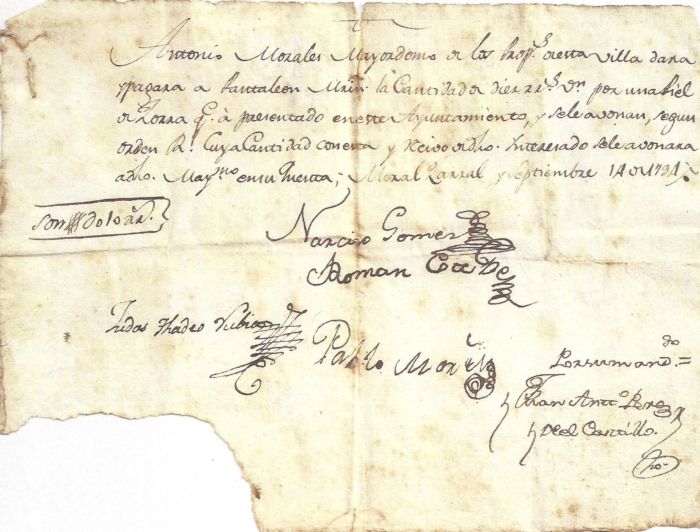 Antonio Morales Mayordomo de los Prop.s de esta villa dara
y pagara a Pantaleon Mrn. la Cantidad de diez rr.s vn por una Piel
de Zorra q.e à presentado en este Ayuntamiento, y se le avonan, segun
orden R.l Cuya Cantidad con esta y Recivo de dho. Interesado se le avonara
a dho. May.mo en su Cuenta; Moral Zarzal y Septiembre 14 de 1794
Son do 10 rr.
Narciso Gomez
Roman Esteve
Judas Thadeo Rubio
Pablo Mor
Por su mand.do =
Fran Ant.o Perez
del Castillo.